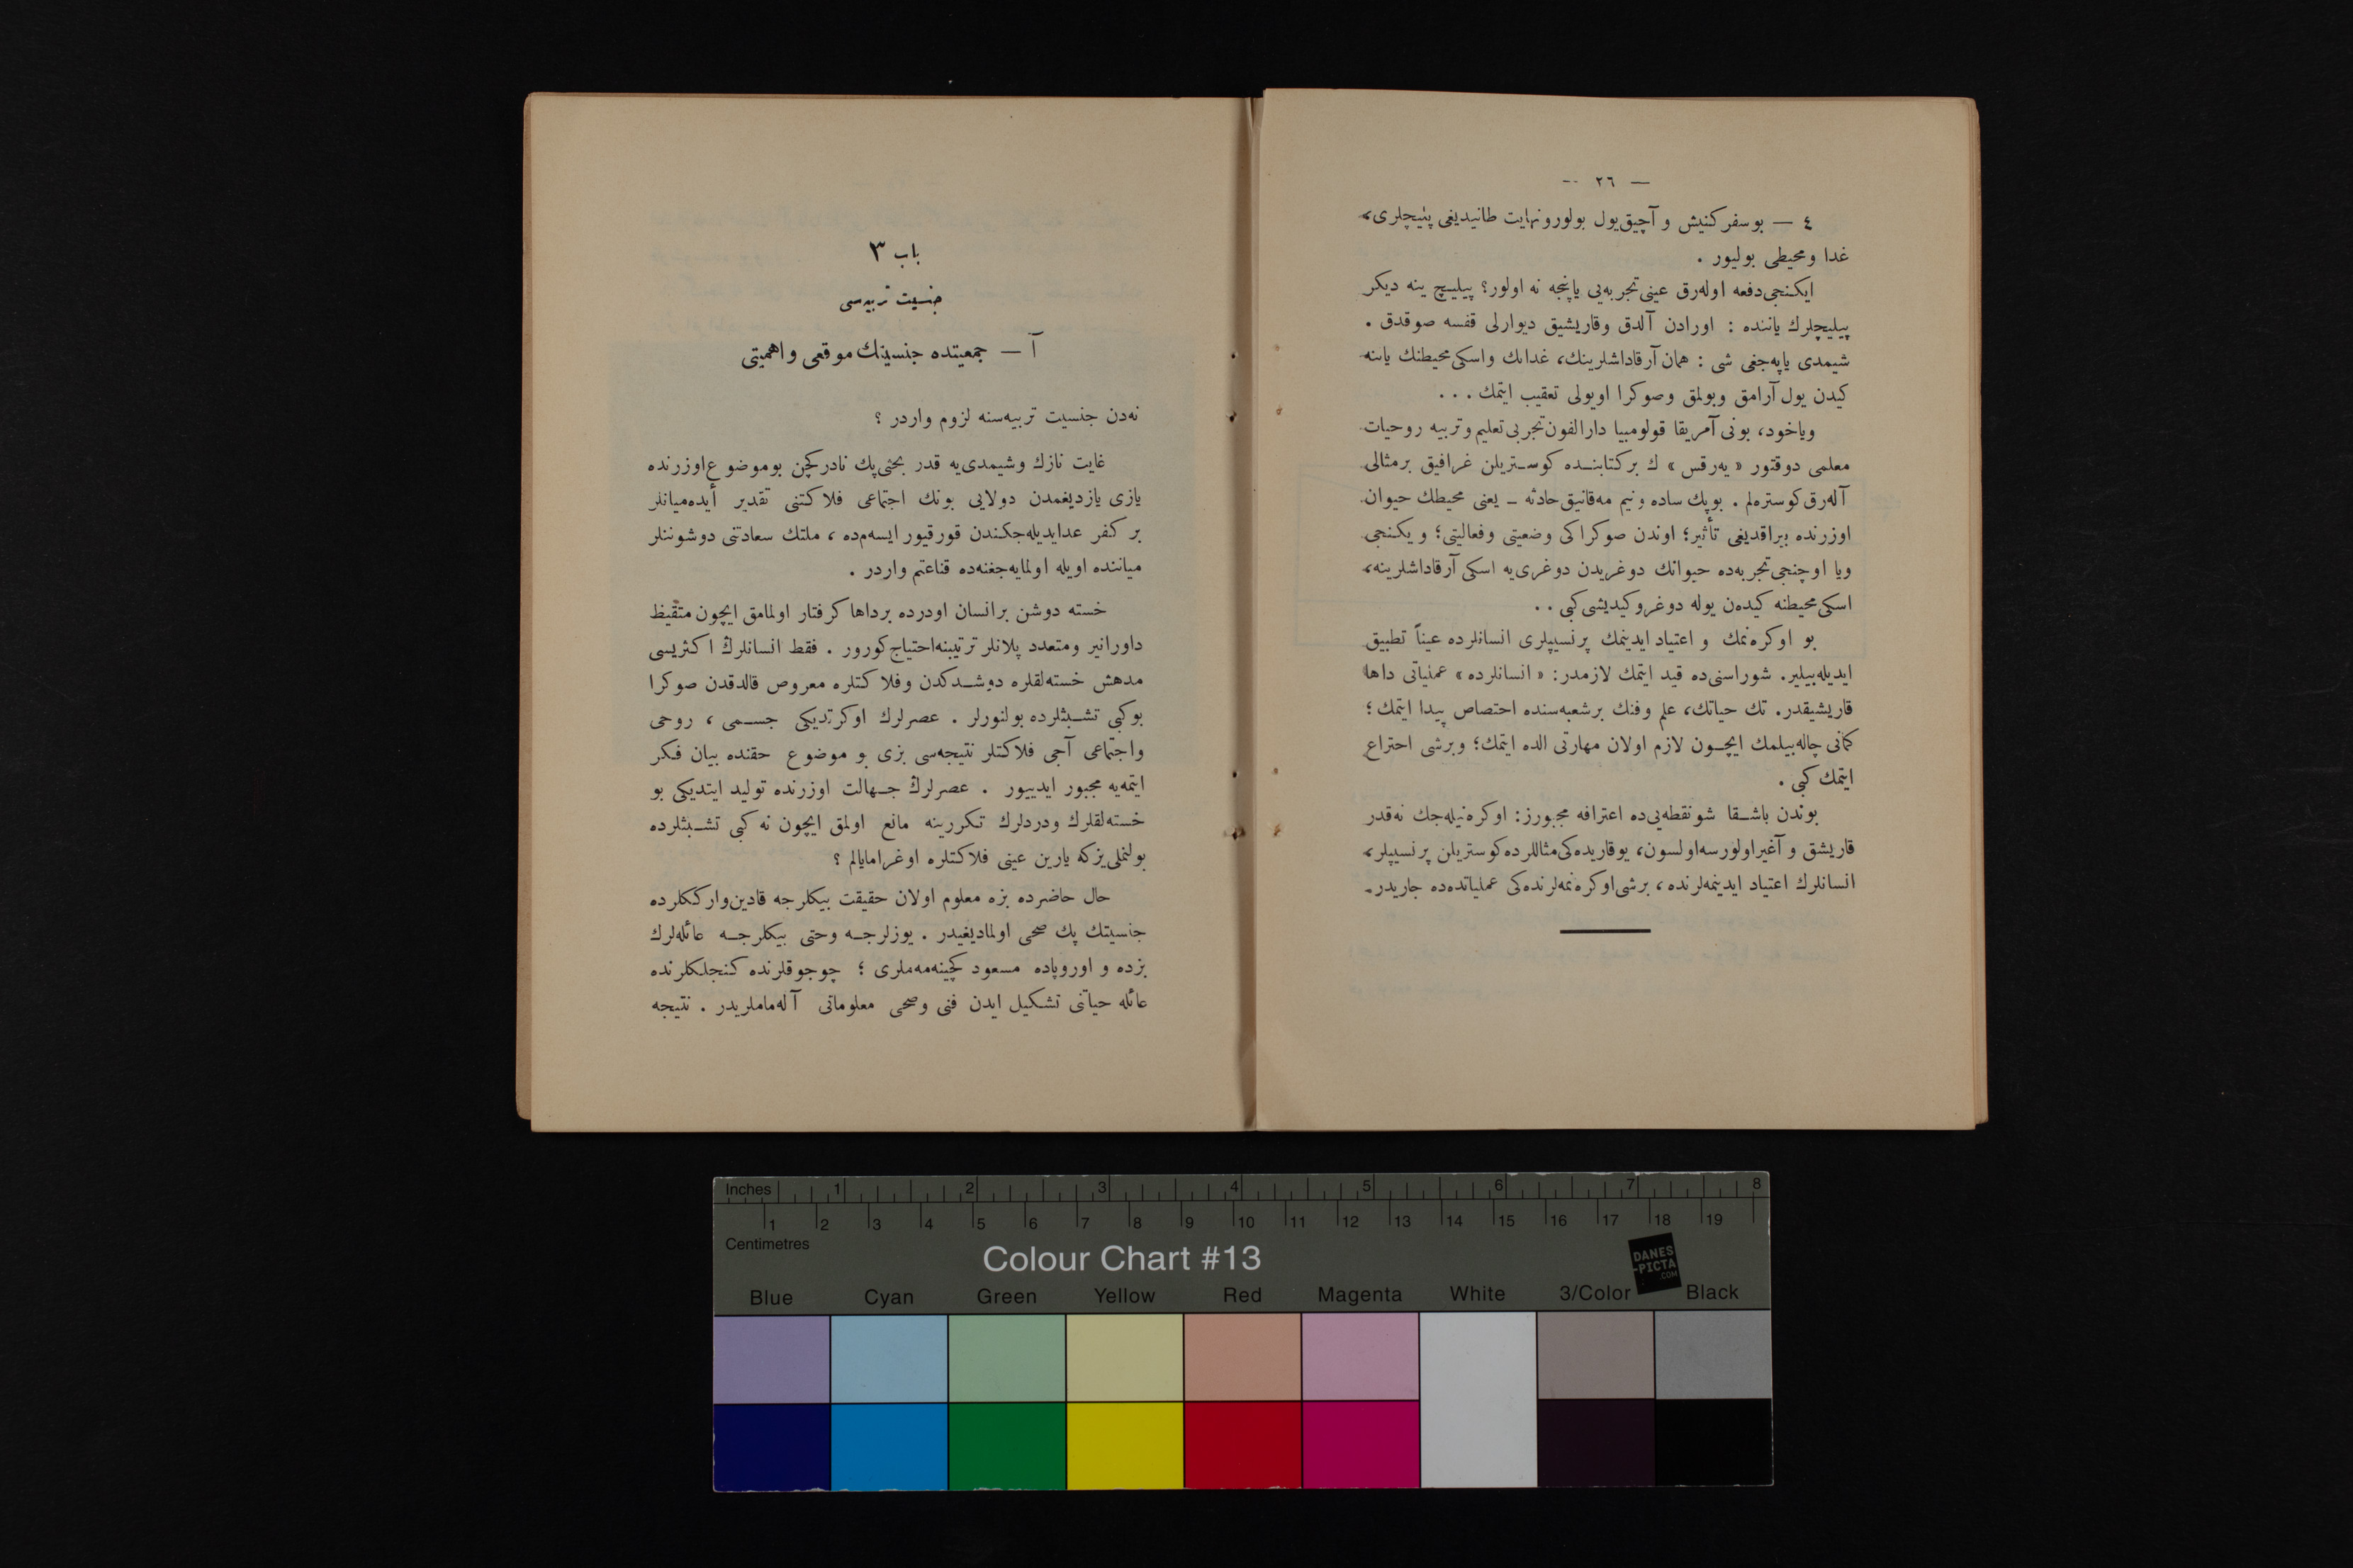 — ٢٦ —
٤ — بو سفر كنيش و آچيق يول بولور ونهايت طانيديغى پيليچلرى،
غدا ومحيطى بوليور .
ايكنجى دفعه اوله‌رق عينى تجربه‌يى ياپنجه نه اولور؟ پيليچ ينه ديكر
پيليچلرك ياننده : اورادن آلدق وقاريشيق ديوارلى قفسه صوقدق .
شيمدى ياپه‌جغى شى : همان آرقاداشلرينك، غدانك واسكى محيطنك ياننه
كيدن يول آرامق وبولمق وصوكرا اويولى تعقيب ايتمك . . .
وياخود، بونى آمريقا قولومبيا دارالفون تجربى تعليم وتربيه روحيات
معلمى دوقتور « يه‌رقس » ك بركتابنده كوستريلن غرافيق برمثالى
آله‌رق كوستره‌لم . بوپك ساده ونيم مه‌قانيق حادثه – يعنى محيطك حيوان
اوزرنده بيراقديغى تأثير؛ اوندن صوكراكى وضعيتى وفعاليتى؛ و يكنجى
ويا اوچنجى تجربه‌ده حيوانك دوغريدن دوغرى‌يه اسكى آرقاداشلرينه،
اسكى محيطنه كيده‌ن يوله دوغرو كيديشى كبى . .
بو اوكره‌نمك و اعتياد ايدينمك پرنسيپلرى انسانلرده عيناً تطبيق
ايديله‌بيلير. شوراسنى‌ده قيد ايتمك لازمدر: « انسانلرده » عملياتى داها
قاريشيقدر. تك حياتك، علم وفنك برشعبه‌سنده احتصاص پيدا ايتمك ؛
كمانى چاله‌بيلمك ايچون لازم اولان مهارتى الده ايتمك؛ وبرشى احتراع
ايتمك كبى .
بوندن باشقا شو نقطه‌يى‌ده اعترافه مجبورز: اوكره‌نيله‌جك نه‌قدر
قاريشق و آغير اولورسه‌اولسون، يوقاريده‌كى مثاللرده كوستريلن پرنسيپلر،
انسانلرك اعتياد ايدينمه‌لرنده، برشى اوكره‌نمه‌لرنده‌كى عملياتده‌ده جاريدر.
باب ٣
جنسيت تربيه‌سى
آ — جمعيتده جنسيتك موقعى واهميتى
نه‌دن جنسيت تربيه‌سنه لزوم واردر ؟
غايت نازك وشيمدى‌يه قدر بحثى پك نادر كچن بوموضوع اوزرنده
يازى يازديغمدن دولايى بونك اجتماعى فلاكتنى تقدير أيده‌ميانلر
بر كفر عدايديله‌جكندن قورقيور ايسه‌م‌ده ، ملتك سعادتنى دوشوننلر
مياننده اويله اولمايه‌جغنه‌ده قناعتم واردر .
خسته دوشن برانسان اودرده برداها كرفتار اولمامق ايچون متقيظ
داورانير ومتعدد پلانلر ترتيبنه‌احتياج كورور . فقط انسانلرك اكثريسى
مدهش خسته‌لقلره دوشدكدن وفلاكتلره معروص قالدقدن صوكرا
بوكبى تشبثلرده بولنورلر . عصرلرك اوكرتديكى جسمى ، روحى
واجتماعى آجى فلاكتلر نتيجه‌سى بزى بو موضوع حقنده بيان فكر
ايتمه‌يه مجبور ايدييور . عصرلرك جهالت اوزرنده توليد ايتديكى بو
خسته‌لقلرك ودردلرك تكررينه مانع اولمق ايچون نه كبى تشبثلرده
بولنملى‌يزكه يارين عينى فلاكتلره اوغرامايالم ؟
حال حاضرده بزه معلوم اولان حقيقت بيكلرجه قادين‌واركلكلرده
جنسيتك پك صحى اولماديغيدر . يوزلرجه وحتى بيكلرجه عائله‌لرك
بزده و اوروپاده مسعود كچينه‌مه‌ملرى ؛ چوجوقلرنده كنجلكلرنده
عائله حياتنى تشكيل ايدن فنى وصحى معلوماتى آله‌ماملريدر . نتيجه
Inches 1 2 3 4 5 6 7 8
1 2 3 4 5 6 7 8 9 10 11 12 13 14 15 16 17 18 19
Centimetres
Colour Chart #13
DANES
-PICTA
.COM
Blue Cyan Green Yellow Red Magenta White 3/Color Black